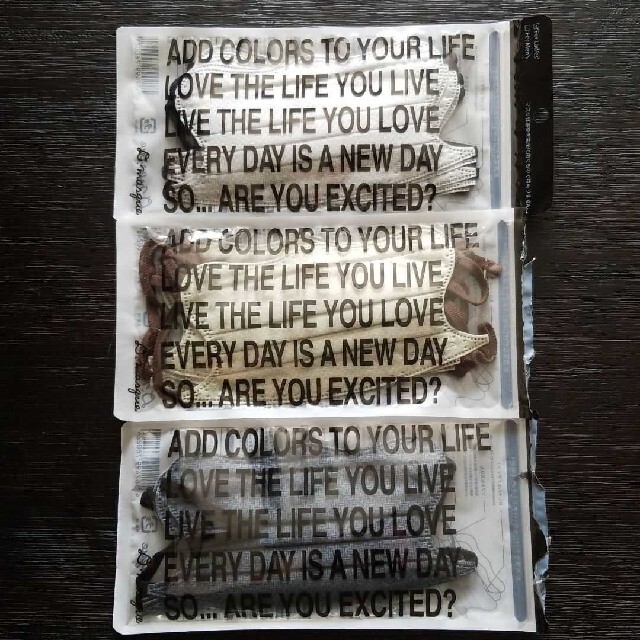 ADD COLORS TO YOUR LIFE
LOVE THE LIFE YOU LIVE
LIVE THE LIFE YOU LOVE
EVERY DAY IS A NEW DAY
SO... ARE YOU EXCITED?
ADD COLORS TO YOUR LIFE
LOVE THE LIFE YOU LIVE
LIVE THE LIFE YOU LOVE
EVERY DAY IS A NEW DAY
SO... ARE YOU EXCITED?
ADD COLORS TO YOUR LIFE
LOVE THE LIFE YOU LIVE
LIVE THE LIFE YOU LOVE
EVERY DAY IS A NEW DAY
SO... ARE YOU EXCITED?